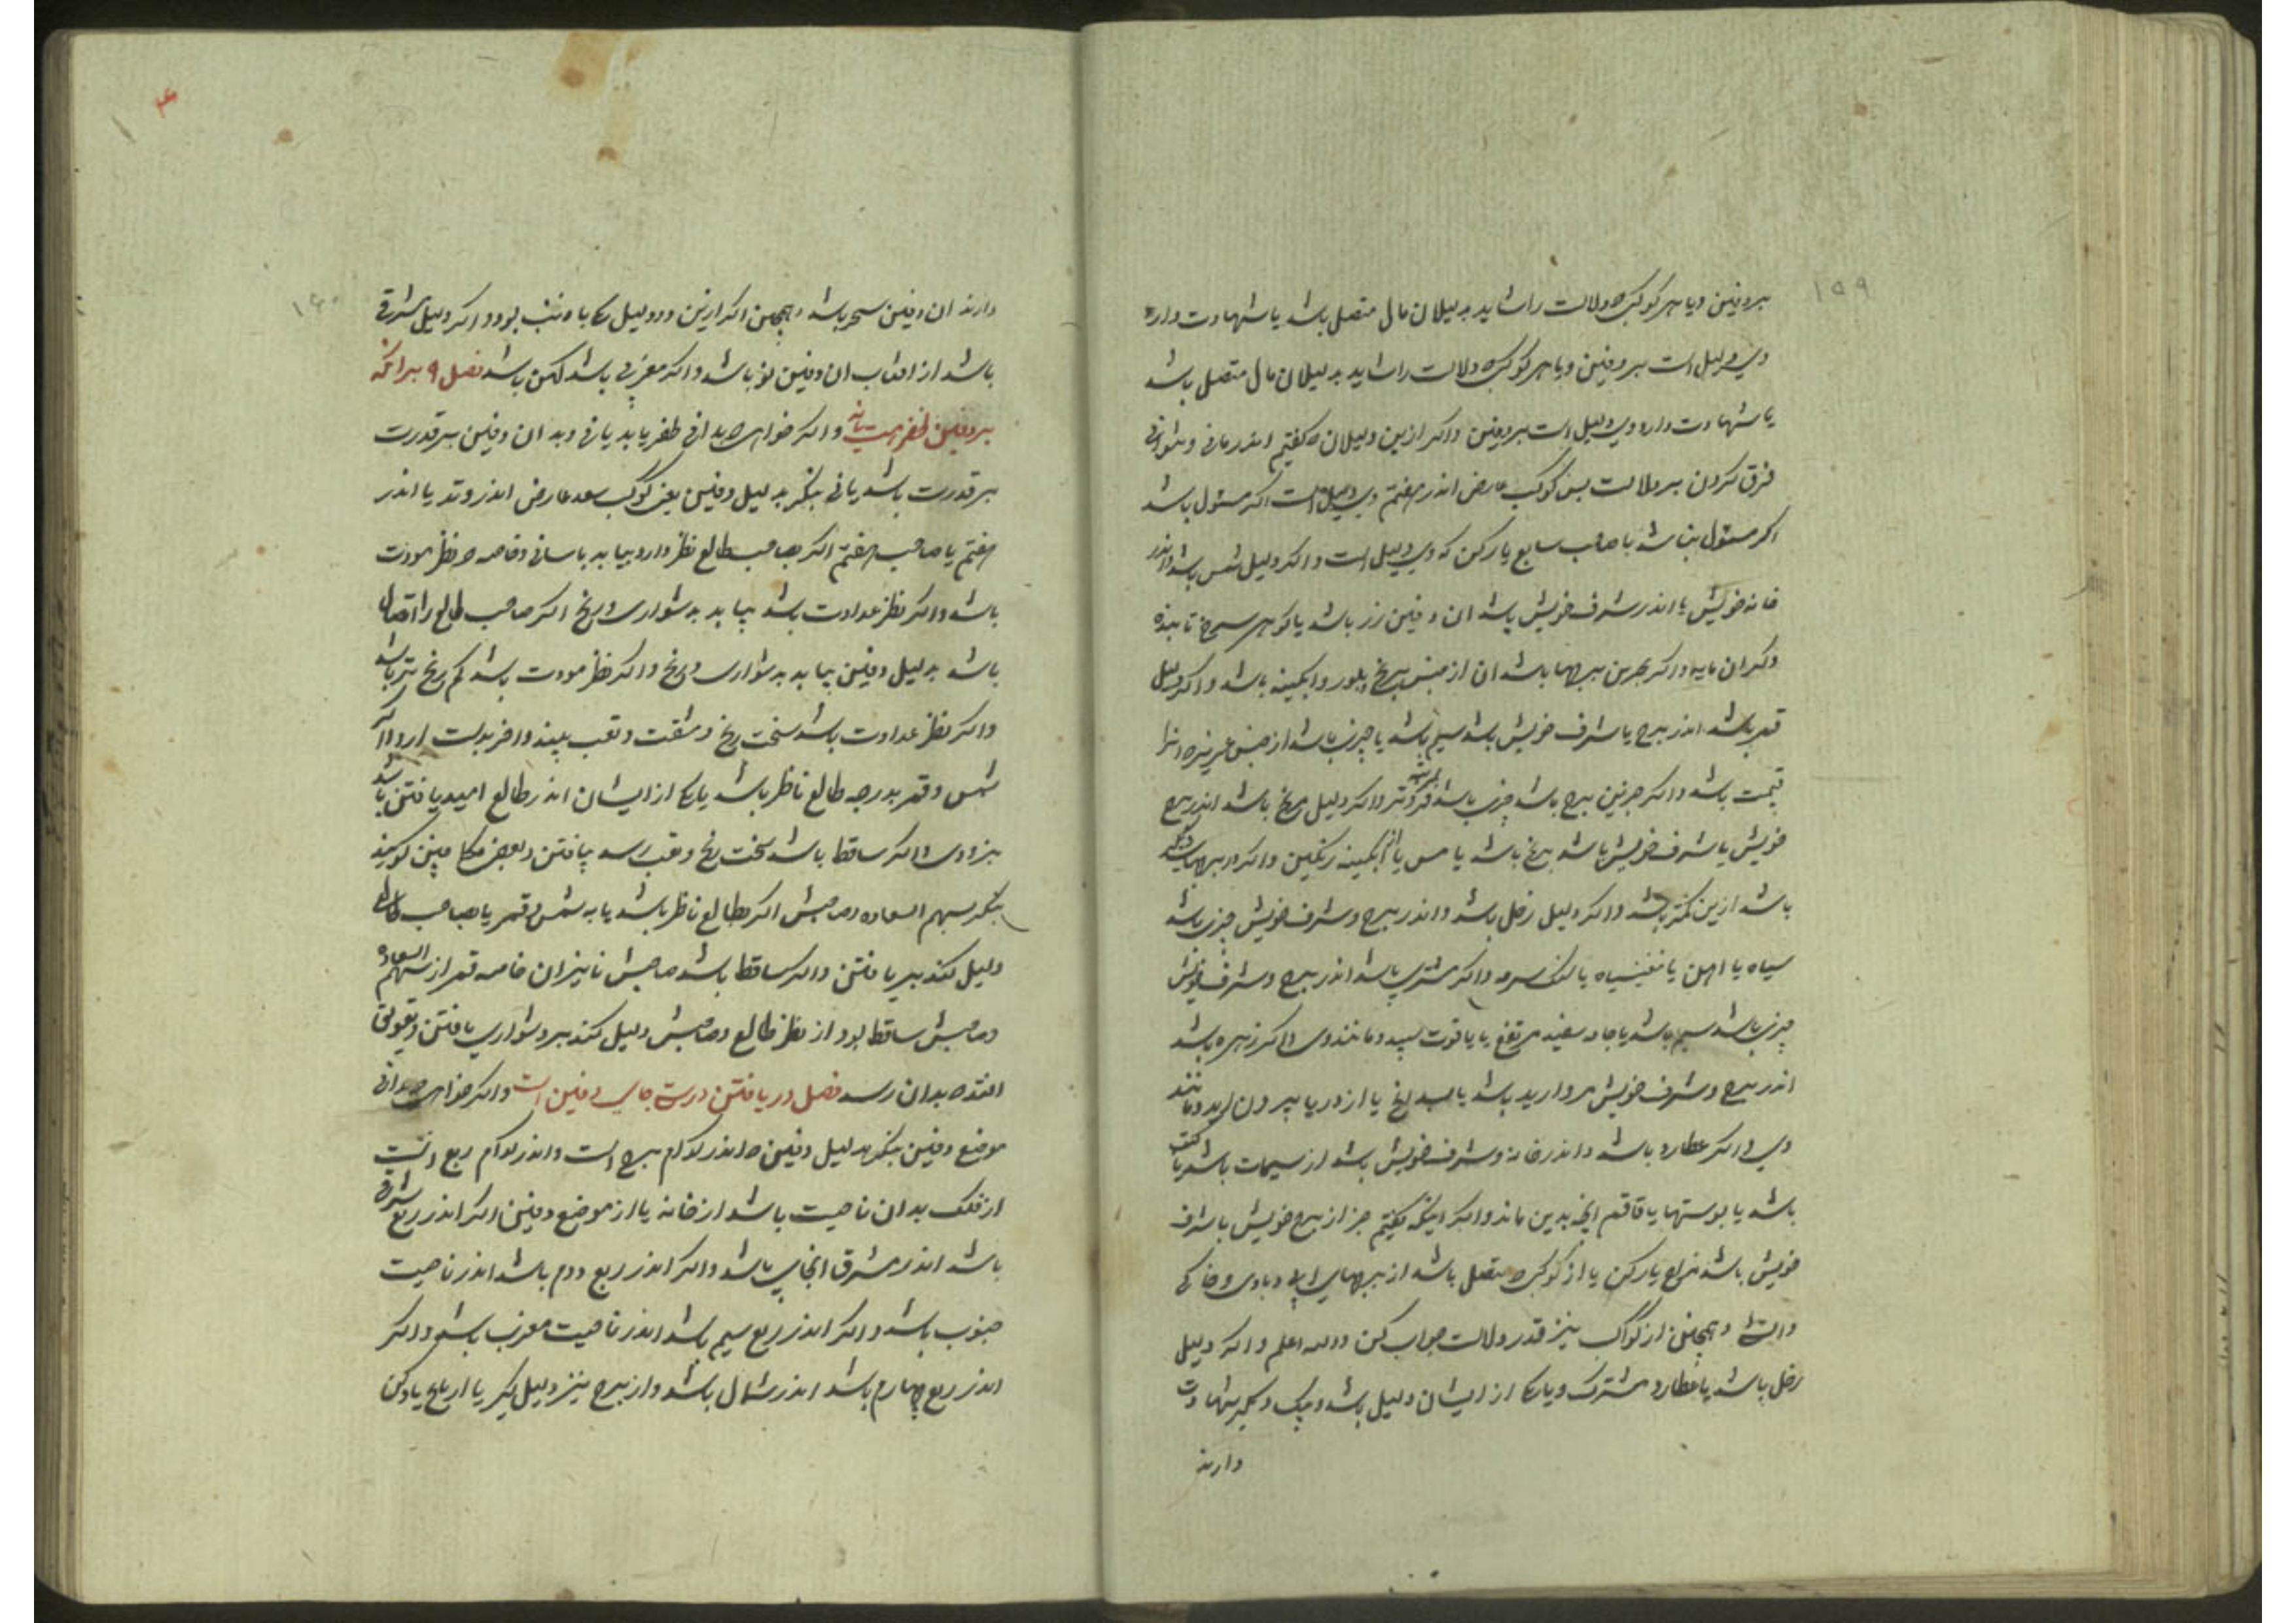 ۱۵۹
بر دفین و یا هر کوکب که دلالت را شاید بدلیلان مال متصل باشد یا شهادت دارد
وی دلیل است بر دفین و یا هر کوکب که دلالت را شاید بدلیلان مال متصل باشد
یا شهادت دارد وی دلیل است بر دفین واکر ازین دلیلان که کفتیم اندر مانی و نتوانی
فرق کردن بر دلالت پس کوکب عارض اندر هفتم وی دلیل است اکر مسئول باشد
اکر مسئول نباشد با صاحب سابع یار کن که وی دلیل است واکر دلیل شمس باشد واندر
خانه خویش یا اندر شرف خویش باشد ان دفین زر باشد یا کوهر سرخ تابنده
وکران مایه واکر بجزین برجها باشد ان از جنس برنج وبلور وابکینه باشد واکر دلیل
قمر باشد اندر برج یا شرف خویش باشد سیم باشد یا چیزی باشد از جنس
قیمت باشد واکر جزین برج باشد چیزی باشد فروتر واکر دلیل مریخ باشد اندر برج
خویش یا شرف خویش باشد برنج باشد یا مس یا ابکینه رنکین واکر در برجهای دیکر
باشد ازین کمتر باشد واکر دلیل زحل باشد واندر برج وشرف خویش چیزی باشد
سیاه یا اهن یا مغنیسیاه یا سنک سرمه واکر مشتری باشد اندر برج وشرف خویش
چیزی باشد سیم باشد یا جامه سفید مرتفع یا یاقوت سپید ومانند وی واکر زهره باشد
اندر برج وشرف خویش مروارید باشد یا یا از دریا بیرون اید ومانند
وی واکر عطارد باشد واندر خانه وشرف خویش باشد از سیمات باشد یا کتب
باشد یا پوستها یا قاقم انچه بدین ماند واکر اینکه بکفتیم جز از برج خویش یا شرف
خویش باشد مزاج یار کن یا از کوکب که متصل باشد از برجهای ابی وبادی وخاکی
واتشی وهمچنین از کواکب نیز قدر دلالت جواب کن والله اعلم واکر دلیل
زحل باشد یا عطارد مشترک ویا یکی از ایشان دلیل باشد ویک دیکر شهادت
دارند
۱۶۰
دارند ان دفین سحر باشد وهمچنین اکر ازین دو دلیل یکی با ذنب بود واکر دلیل شرقی
باشد از افتاب ان دفین نو باشد واکر مغربی باشد کهن باشد فصل ۹ برانکه
بر دفین ظفر هست یا نه واکر خواهی که بدانی ظفر یابد یا نی وبدان دفین بر قدرت
بر قدرت باشد یا نی بنکر بدلیل دفین یعنی کوکب سعد عارض اندر وتد یا اندر
هفتم یا صاحب هفتم اکر بصاحب طالع نظر دارد بیابد باسانی وخاصه که نظر مودت
باشد واکر نظر عداوت باشد بیابد بدشواری ورنج اکر صاحب طالع را اتصال
باشد بدلیل دفین بیابد بدشواری ورنج واکر نظر مودت باشد کم رنج تر باشد
واکر نظر عداوت باشد سخت رنج ومشقت وتعب بیند واخر بدست ارد واکر
شمس وقمر بدرجه طالع ناظر باشد یا یکی از ایشان اندر طالع امید یافتن باشد
بزودی واکر ساقط باشد سخت رنج وتعب رسد بیافتن وبعضی حکما چنین کویند
بنکر بسهم السعاده وصاحبش اکر بطالع ناظر باشد یا به شمس وقمر یا بصاحب طالع
دلیل کند بر یافتن واکر ساقط باشد صاحبش نا نیران خاصه قمر از سهم السعاده
وصاحبش ساقط بود از نظر طالع وصاحبش دلیل کند بر دشواری یافتن وتعویق
افتد که بدان رسد فصل در یافتن درستی جای دفین است واکر خواهی که بدانی
موضع دفین بنکر بدلیل دفین که اندر کدام برج است واندر کدام ربع است
از فلک بدان ناحیت باشد از خانه یا از موضع دفین اکر اندر ربع شرقی
باشد اندر مشرق انجای باشد واکر اندر ربع دوم باشد اندر ناحیت
جنوب باشد واکر اندر ربع سیم باشد اندر ناحیت مغرب باشد واکر
اندر ربع چهارم باشد اندر شمال باشد واز برج نیز دلیل بکیر با ارباع یاد کن